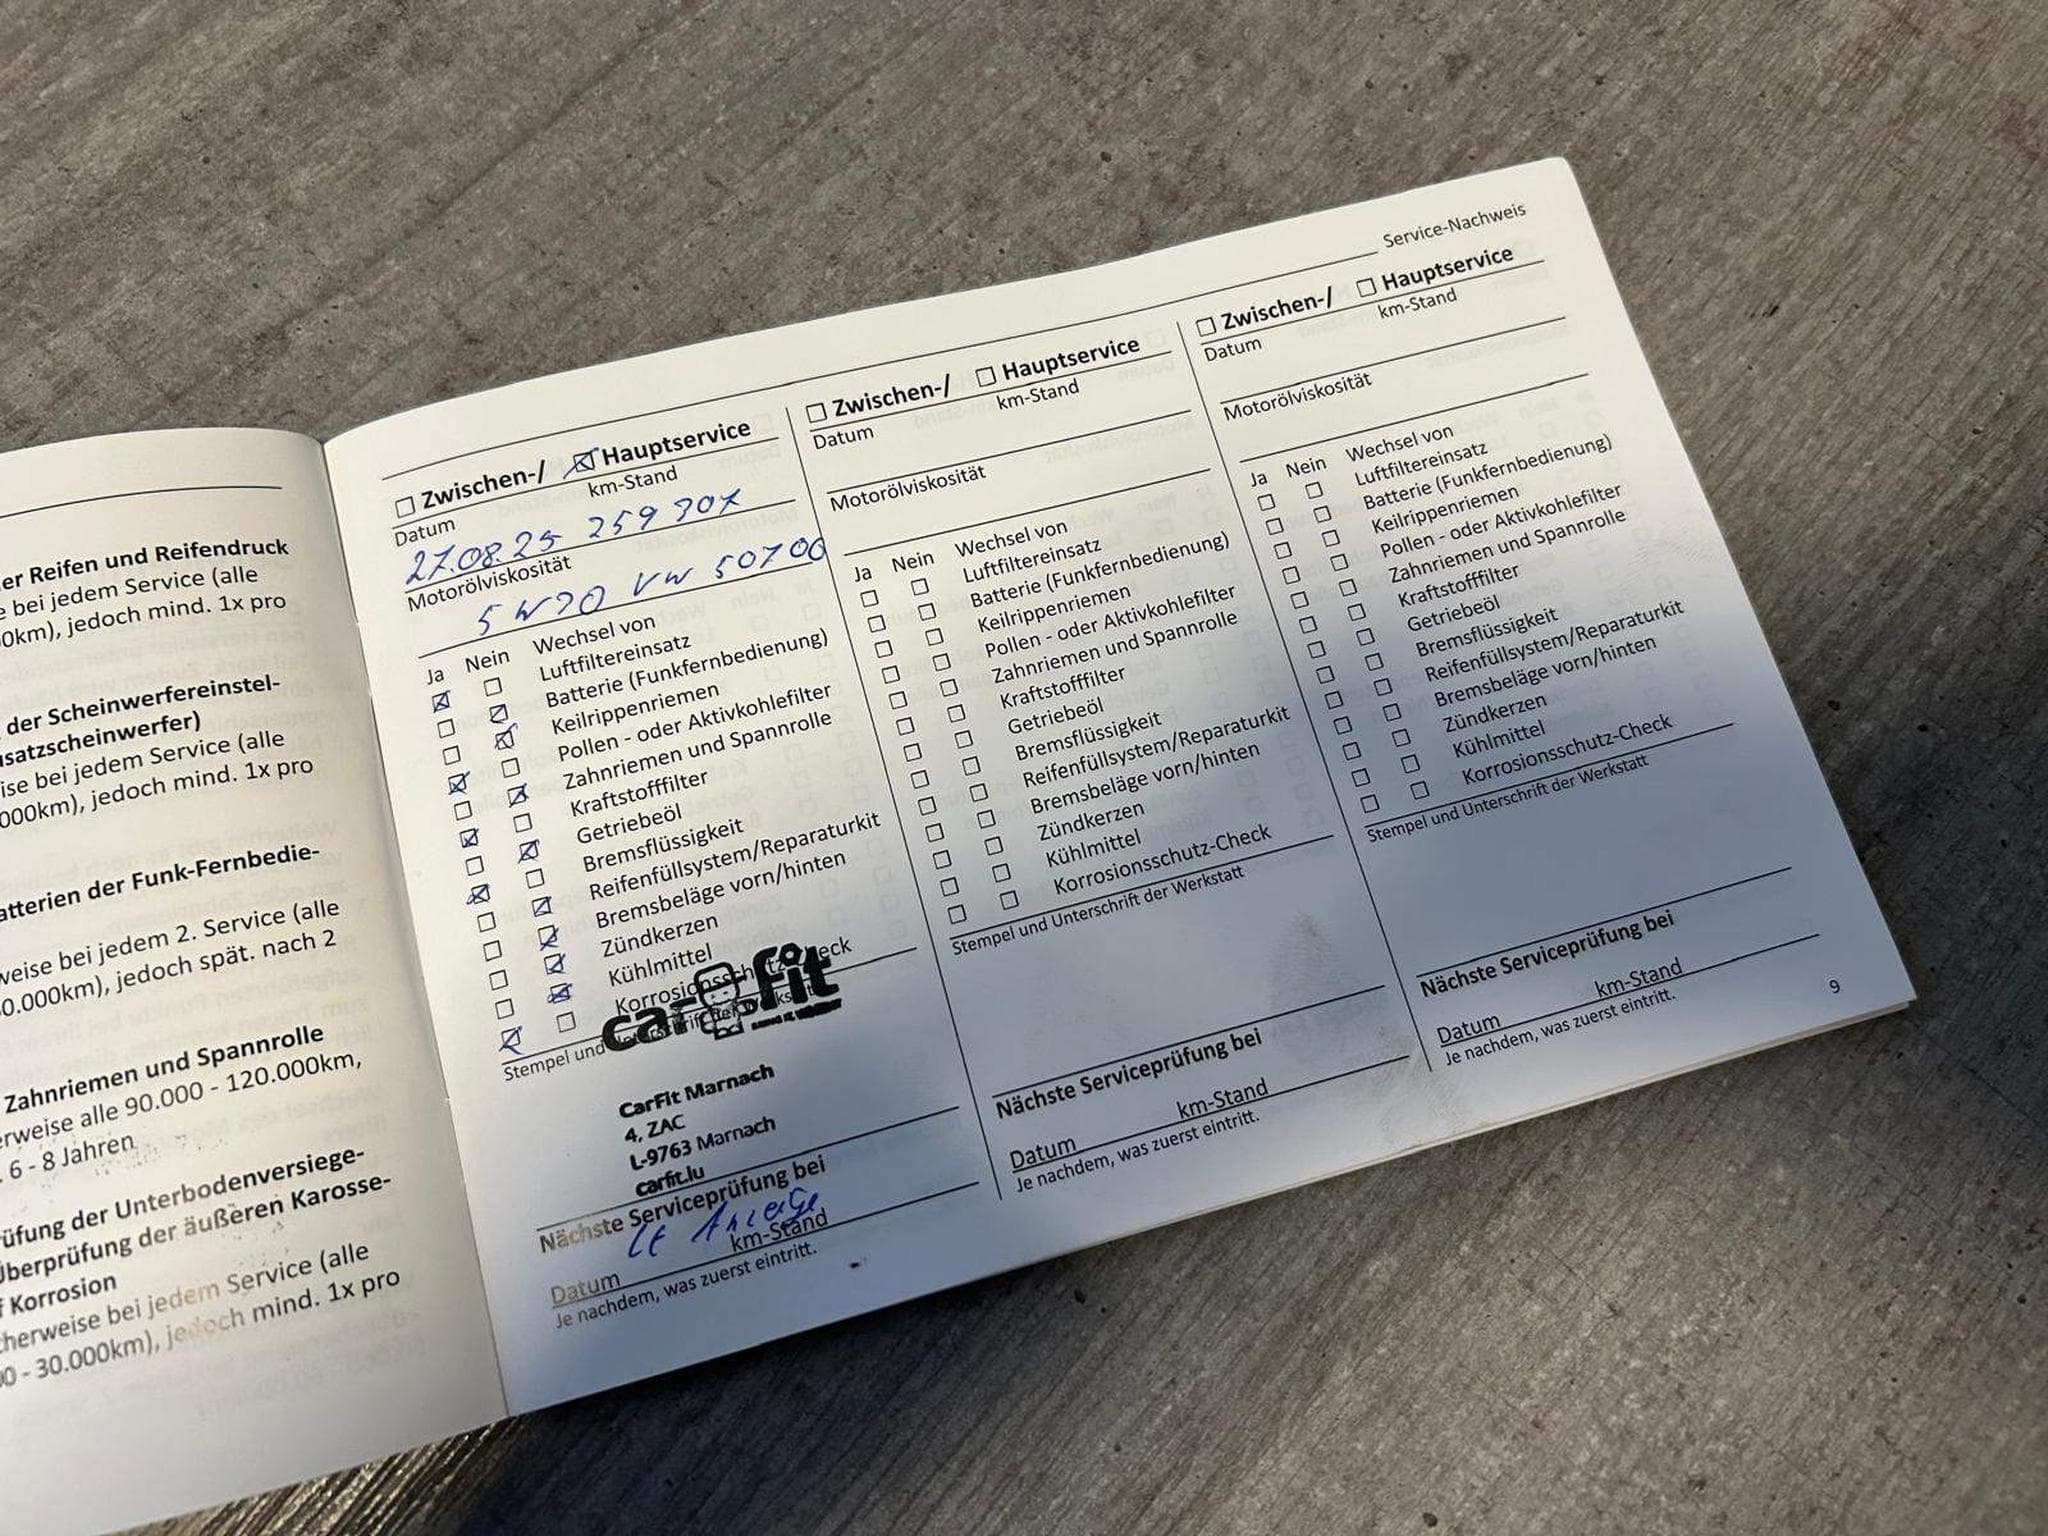 er Reifen und Reifendruck
e bei jedem Service (alle
0km), jedoch mind. 1x pro
der Scheinwerfereinstel-
usatzscheinwerfer)
ise bei jedem Service (alle
000km), jedoch mind. 1x pro
atterien der Funk-Fernbedie-
weise bei jedem 2. Service (alle
0.000km), jedoch spät. nach 2
Zahnriemen und Spannrolle
erweise alle 90.000 - 120.000km,
. 6 - 8 Jahren
rüfung der Unterbodenversiege-
Überprüfung der äußeren Karosse-
f Korrosion
cherweise bei jedem Service (alle
00 - 30.000km), jedoch mind. 1x pro
Service-Nachweis
Zwischen-/ Hauptservice
Datum km-Stand
27.08.25
Motorölviskosität
VW 50700
Ja Nein Wechsel von
Luftfiltereinsatz
Batterie (Funkfernbedienung)
Keilrippenriemen
Pollen - oder Aktivkohlefilter
Zahnriemen und Spannrolle
Kraftstofffilter
Getriebeöl
Bremsflüssigkeit
Reifenfüllsystem/Reparaturkit
Bremsbeläge vorn/hinten
Zündkerzen
Kühlmittel
Korrosionsschutz-Check
Stempel und Unterschrift der Werkstatt
carfit
CarFit Marnach
4, ZAC
L-9763 Marnach
carfit.lu
Nächste Serviceprüfung bei
Lt Anzeige
Datum km-Stand
Je nachdem, was zuerst eintritt.
Zwischen-/ Hauptservice
Datum km-Stand
Motorölviskosität
Ja Nein Wechsel von
Luftfiltereinsatz
Batterie (Funkfernbedienung)
Keilrippenriemen
Pollen - oder Aktivkohlefilter
Zahnriemen und Spannrolle
Kraftstofffilter
Getriebeöl
Bremsflüssigkeit
Reifenfüllsystem/Reparaturkit
Bremsbeläge vorn/hinten
Zündkerzen
Kühlmittel
Korrosionsschutz-Check
Stempel und Unterschrift der Werkstatt
Nächste Serviceprüfung bei
Datum km-Stand
Je nachdem, was zuerst eintritt.
Zwischen-/ Hauptservice
Datum km-Stand
Motorölviskosität
Ja Nein Wechsel von
Luftfiltereinsatz
Batterie (Funkfernbedienung)
Keilrippenriemen
Pollen - oder Aktivkohlefilter
Zahnriemen und Spannrolle
Kraftstofffilter
Getriebeöl
Bremsflüssigkeit
Reifenfüllsystem/Reparaturkit
Bremsbeläge vorn/hinten
Zündkerzen
Kühlmittel
Korrosionsschutz-Check
Stempel und Unterschrift der Werkstatt
Nächste Serviceprüfung bei
Datum km-Stand
Je nachdem, was zuerst eintritt.
9